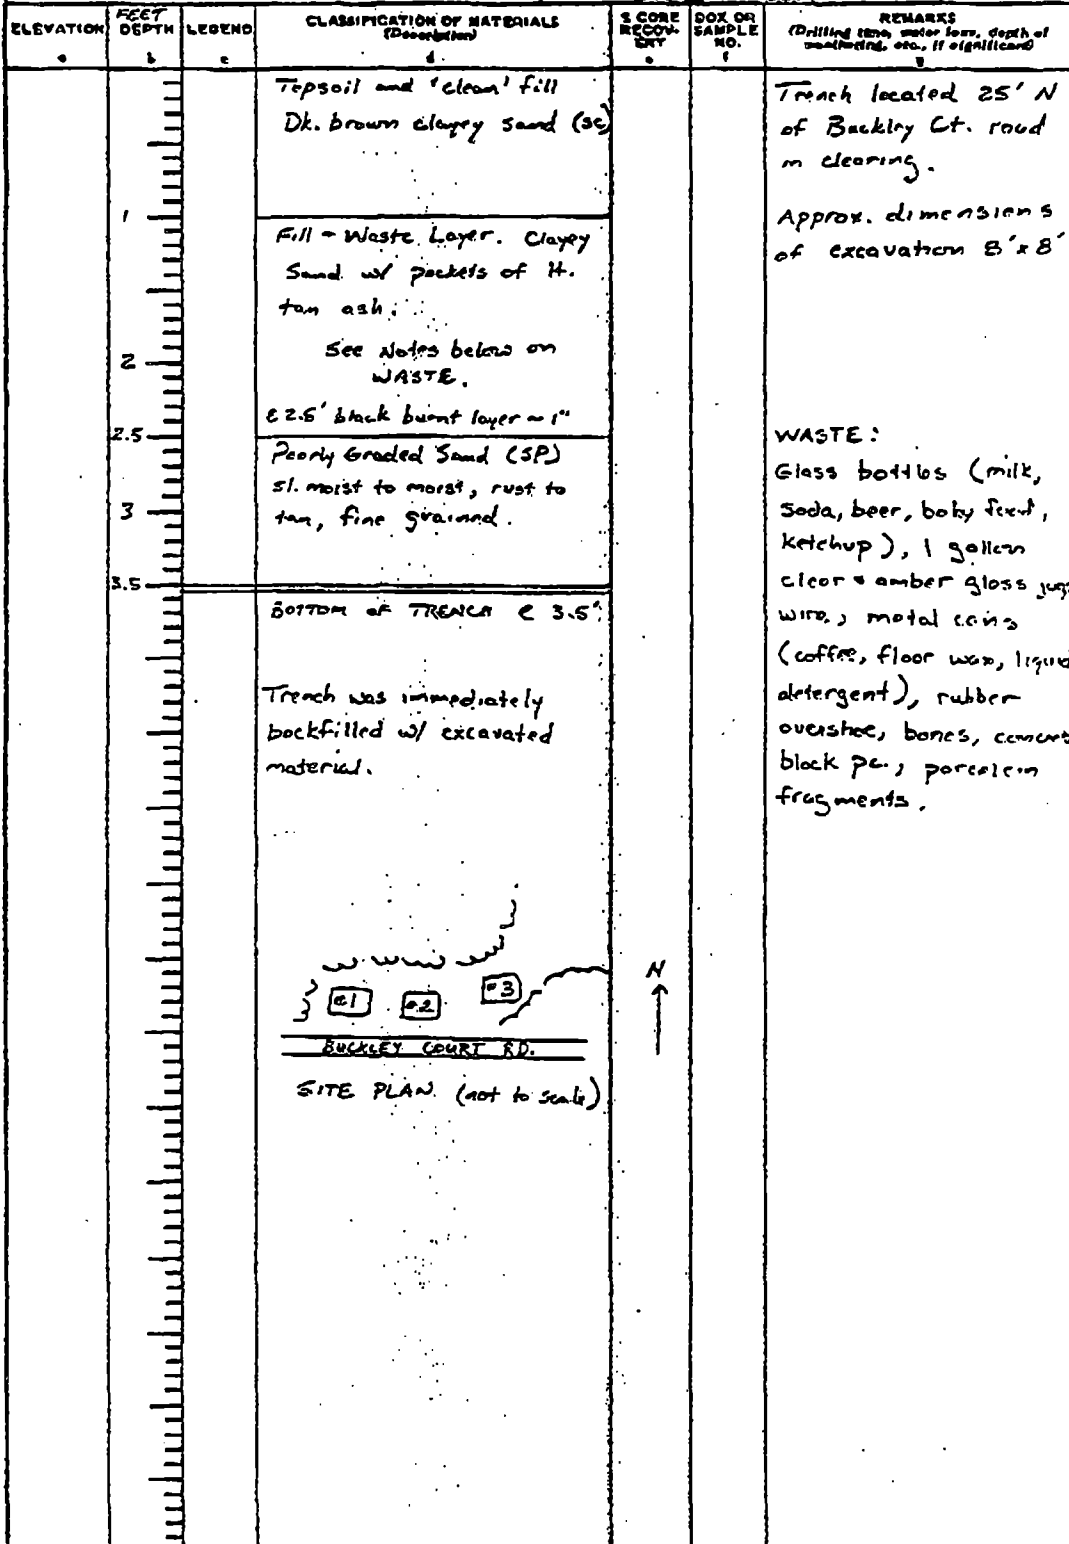 ELEVATION
FEET
DEPTH
LEGEND
CLASSIFICATION OF MATERIALS
(Description)
% CORE
RECOV-
ERY
BOX OR
SAMPLE
NO.
REMARKS
(Drilling time, water loss, depth of
weathering, etc., if significant)
a
b
c
d
e
f
g
Topsoil and 'clean' fill
Dk. brown clayey sand (SC)
1
Fill - Waste Layer. Clayey
Sand w/ pockets of lt.
tan ash.
See Notes below on
WASTE.
2
@ 2.5' black burnt layer ~ 1"
2.5
Poorly Graded Sand (SP)
sl. moist to moist, rust to
tan, fine grained.
3
3.5
BOTTOM OF TRENCH @ 3.5'
Trench was immediately
backfilled w/ excavated
material.
#1
#2
#3
BUCKLEY COURT RD.
SITE PLAN. (not to scale)
N
Trench located 25' N
of Buckley Ct. road
in clearing.
Approx. dimensions
of excavation 8' x 8'
WASTE:
Glass bottles (milk,
soda, beer, baby food,
ketchup), 1 gallon
clear & amber glass jugs
wire, metal cans
(coffee, floor wax, liquid
detergent), rubber
overshoe, bones, concrete
block pc., porcelain
fragments.